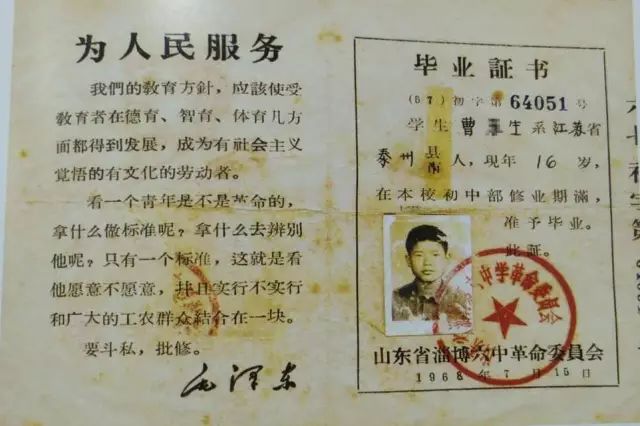 为人民服务
我們的教育方針，应該使受
教育者在德育、智育、体育几方
面都得到发展，成为有社会主义
觉悟的有文化的劳动者。
看一个青年是不是革命的，
拿什么做标准呢？拿什么去辨别
他呢？只有一个标准，这就是看
他愿意不愿意，并且实行不实行
和广大的工农群众結合在一块。
要斗私，批修。
毛泽东
毕业証书
(67)初字第64051号
学生曹 生系江苏省
泰州县市人，現年16岁，
在本校初中部修业期滿，
准予毕业。
此証。
山东省淄博六中革命委員会
1968年7月15日
中学革命委員会
六七初字第